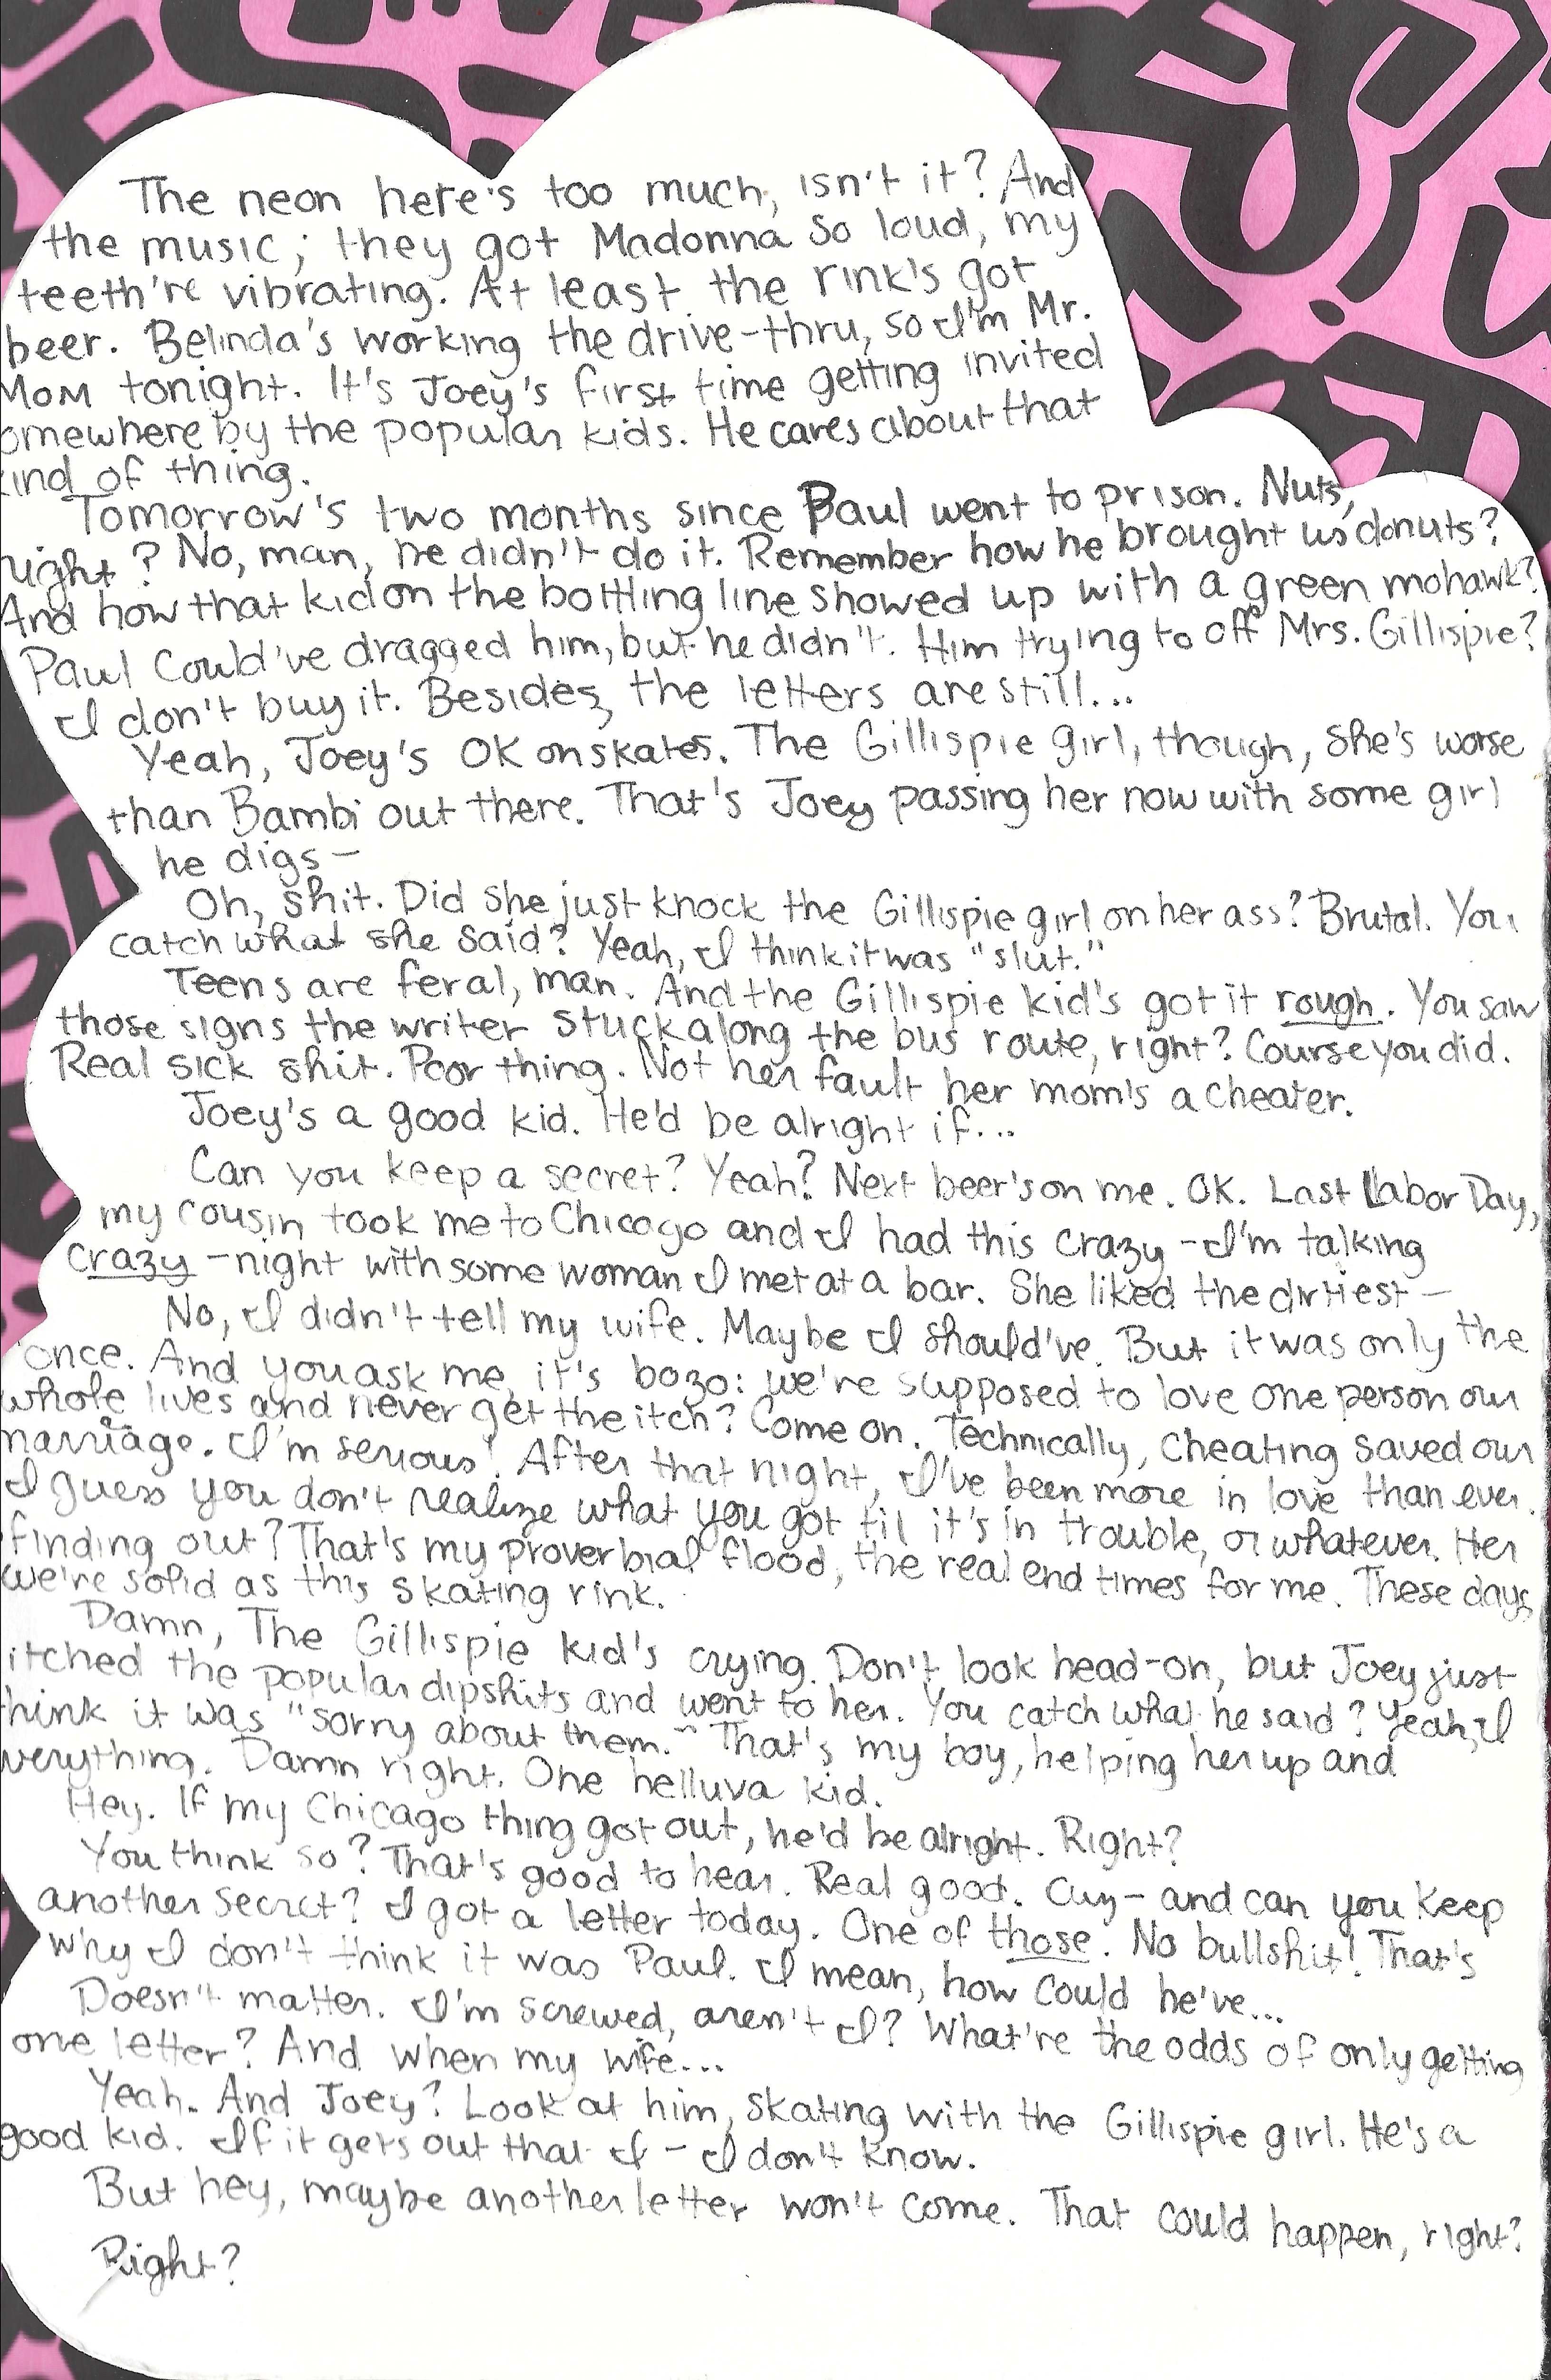 The neon here's too much, isn't it? And
the music; they got Madonna so loud, my
teeth're vibrating. At least the rink's got
beer. Belinda's working the drive-thru, so I'm Mr.
Mom tonight. It's Joey's first time getting invited
omewhere by the popular kids. He cares about that
ind of thing.
Tomorrow's two months since Paul went to prison. Nuts,
right? No, man, he didn't do it. Remember how he brought us donuts?
And how that kid on the bottling line showed up with a green mohawk?
Paul could've dragged him, but he didn't. Him trying to off Mrs. Gillispie?
I don't buy it. Besides, the letters are still...
Yeah, Joey's OK on skates. The Gillispie girl, though, she's worse
than Bambi out there. That's Joey passing her now with some girl
he digs–
Oh, shit. Did she just knock the Gillispie girl on her ass? Brutal. You
catch what she said? Yeah, I think it was "slut."
Teens are feral, man. And the Gillispie kid's got it rough. You saw
those signs the writer stuck along the bus route, right? Course you did.
Real sick shit. Poor thing. Not her fault her mom's a cheater.
Joey's a good kid. He'd be alright if...
Can you keep a secret? Yeah? Next beer's on me. OK. Last Labor Day,
my cousin took me to Chicago and I had this crazy – I'm talking
crazy – night with some woman I met at a bar. She liked the dirtiest –
No, I didn't tell my wife. Maybe I should've. But it was only the
once. And you ask me, it's bozo: we're supposed to love one person our
whole lives and never get the itch? Come on. Technically, cheating saved our
marriage. I'm serious! After that night, I've been more in love than ever.
I guess you don't realize what you got til it's in trouble, or whatever. Her
finding out? That's my proverbial flood, the real end times for me. These days
we're solid as this skating rink.
Damn, The Gillispie kid's crying. Don't look head-on, but Joey just
itched the popular dipshits and went to her. You catch what he said? Yeah, I
hink it was "sorry about them." That's my boy, helping her up and
verything. Damn right. One helluva kid.
Hey. If my Chicago thing got out, he'd be alright. Right?
You think so? That's good to hear. Real good. Cuz – and can you keep
another secret? I got a letter today. One of those. No bullshit! That's
why I don't think it was Paul. I mean, how could he've...
Doesn't matter. I'm screwed, aren't I? What're the odds of only getting
one letter? And when my wife...
Yeah. And Joey? Look at him, skating with the Gillispie girl. He's a
good kid. If it gets out that I – I don't know.
But hey, maybe another letter won't come. That could happen, right?
Right?